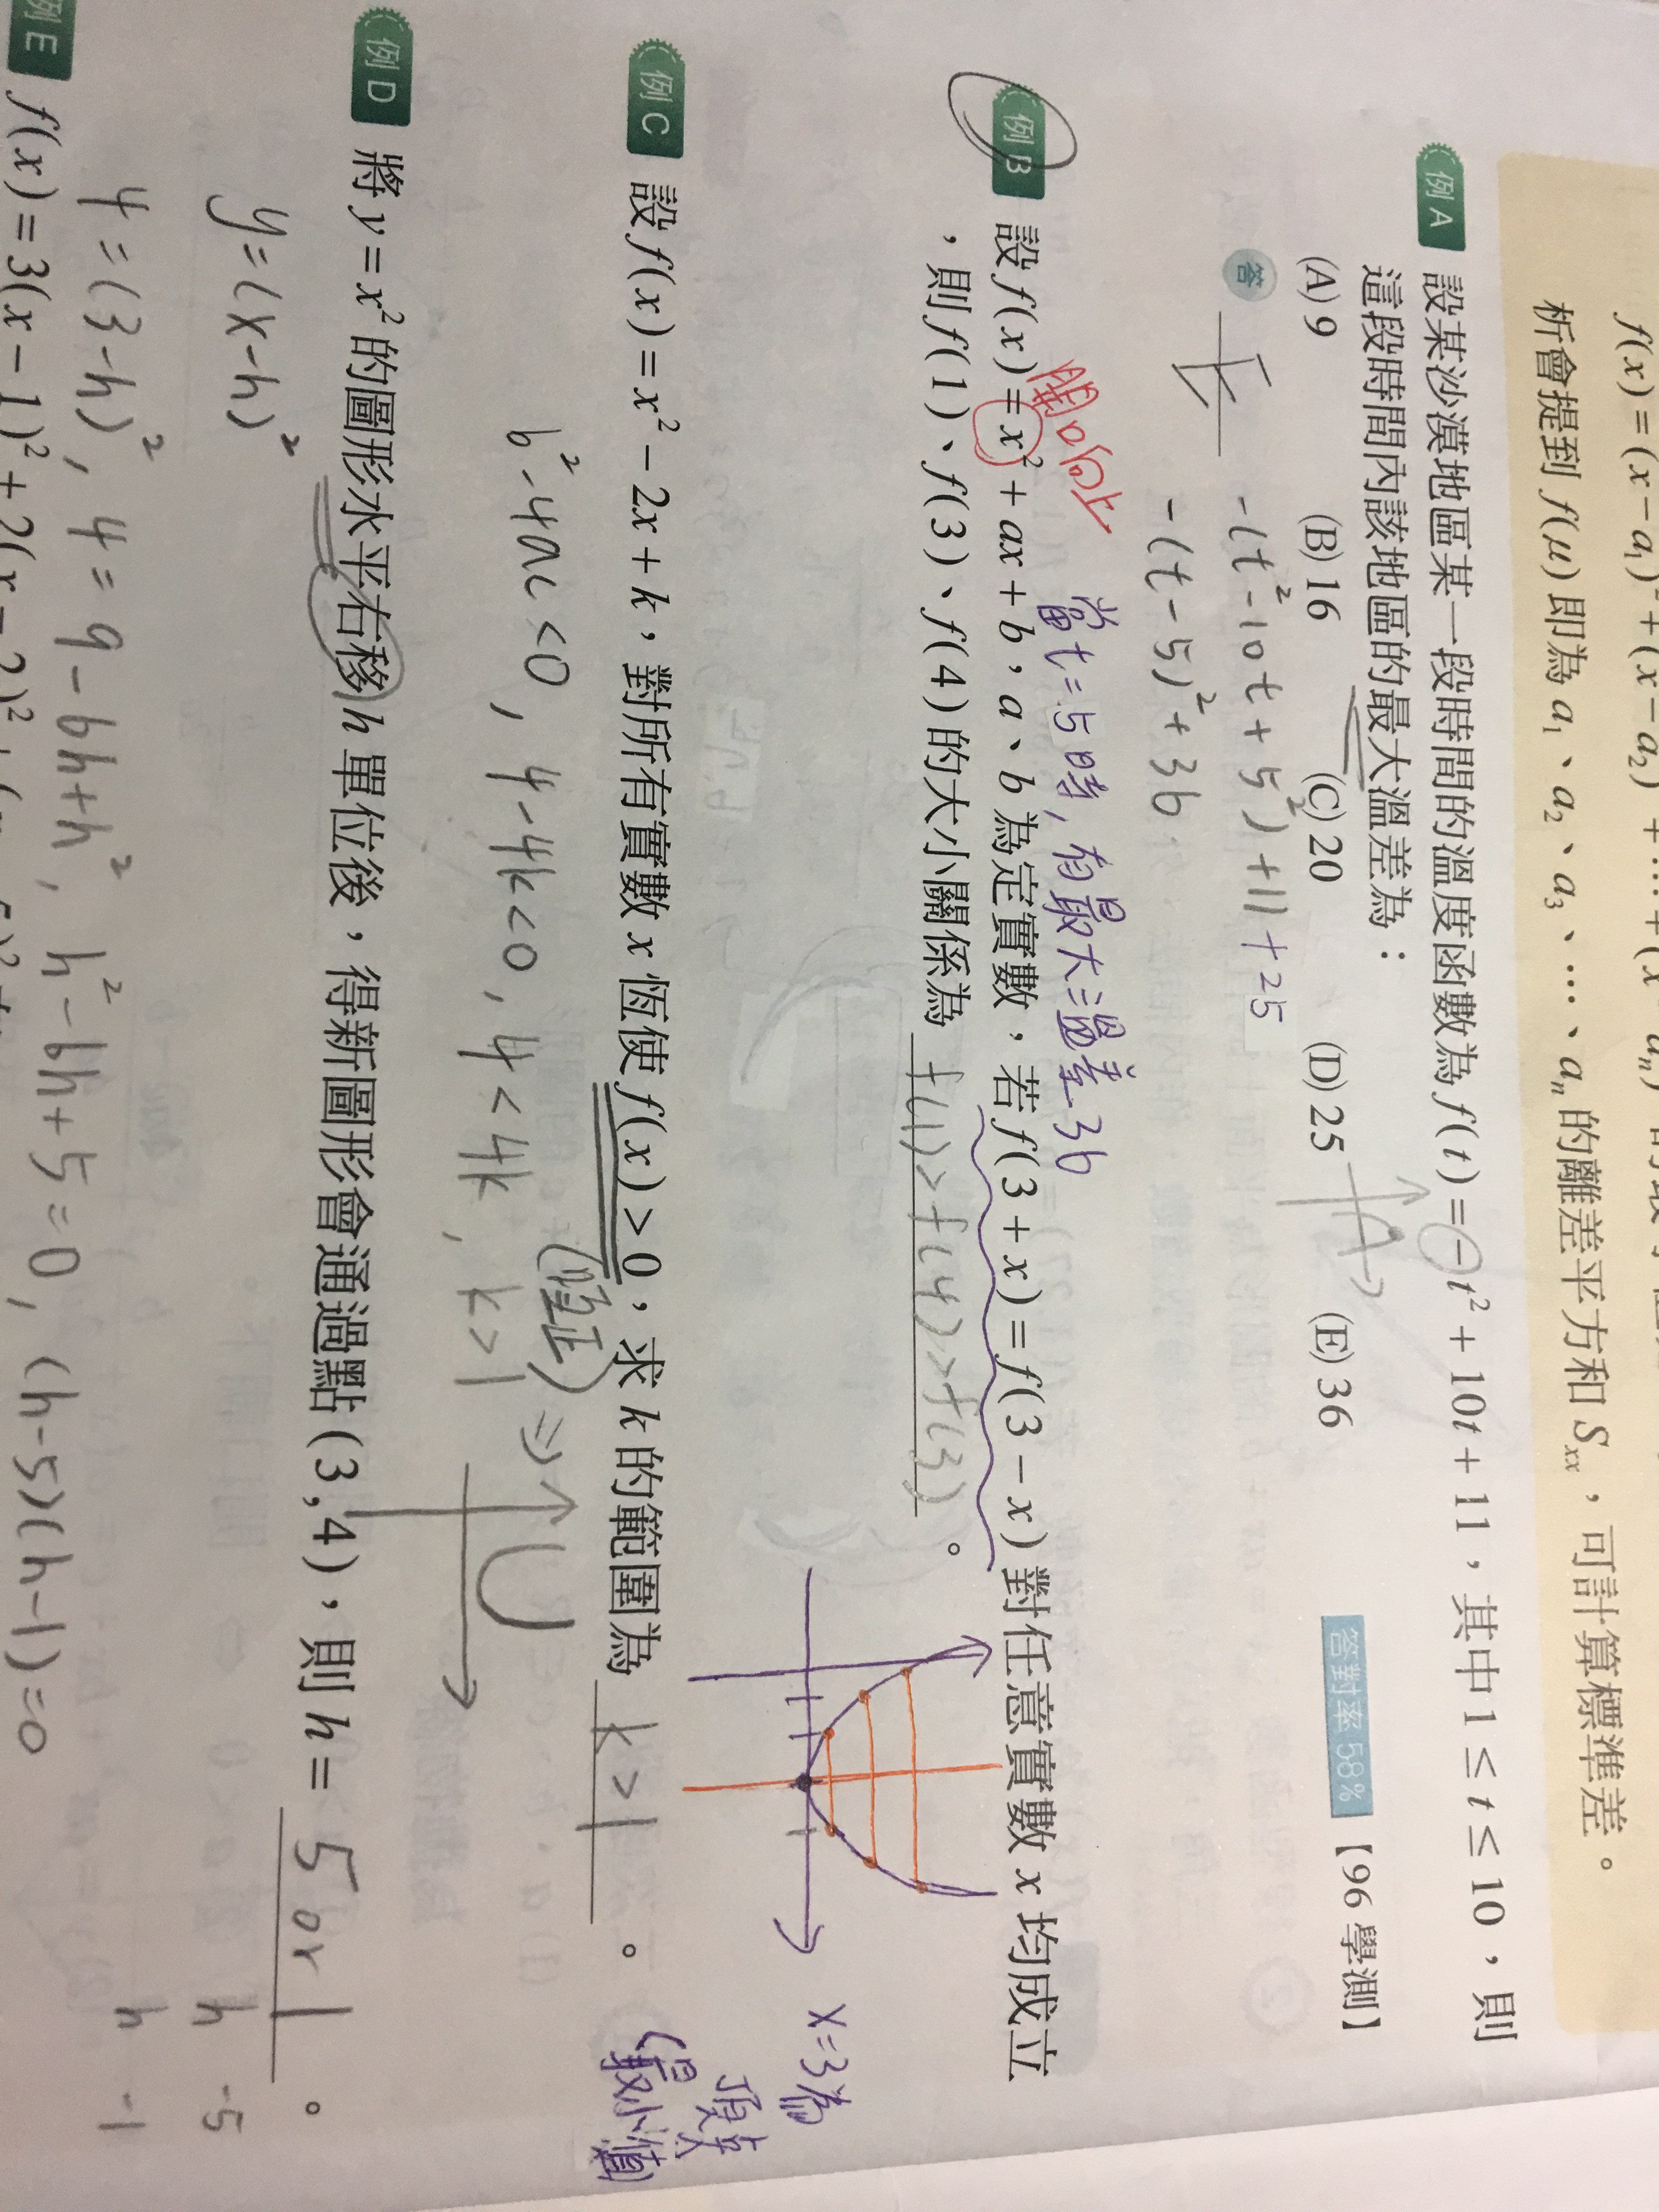 f(x)=(x−a₁)²+(x−a₂)²+…+(x−aₙ)²
析會提到 f(μ) 即為 a₁、a₂、a₃、…、aₙ 的離差平方和 Sₓₓ，可計算標準差。
例 A 設某沙漠地區某一段時間的溫度函數為 f(t)=−t²+10t+11，其中 1≤t≤10，則
這段時間內該地區的最大溫差為：
(A) 9 (B) 16 (C) 20 (D) 25 (E) 36
答對率 58% 【96 學測】
答
-(t²-10t+5²)+11+25
-(t-5)²+36
當t=5時,有最大溫差36
開口向上
例 B 設 f(x)=x²+ax+b，a、b 為定實數，若 f(3+x)=f(3−x) 對任意實數 x 均成立
，則 f(1)、f(3)、f(4) 的大小關係為 f(1)>f(4)>f(3)。
x=3為
頂點
(最小值)
例 C 設 f(x)=x²−2x+k，對所有實數 x 恆使 f(x)>0，求 k 的範圍為 k>1。
(恆正) ⇒
b²-4ac<0, 4-4k<0, 4<4k, k>1
例 D 將 y=x² 的圖形水平右移 h 單位後，得新圖形會通過點 (3,4)，則 h= 5 or 1。
y=(x-h)²
h -5
h -1
4=(3-h)², 4=9-6h+h², h²-6h+5=0, (h-5)(h-1)=0
例 E f(x)=3(x−1)²+2(x−2)²